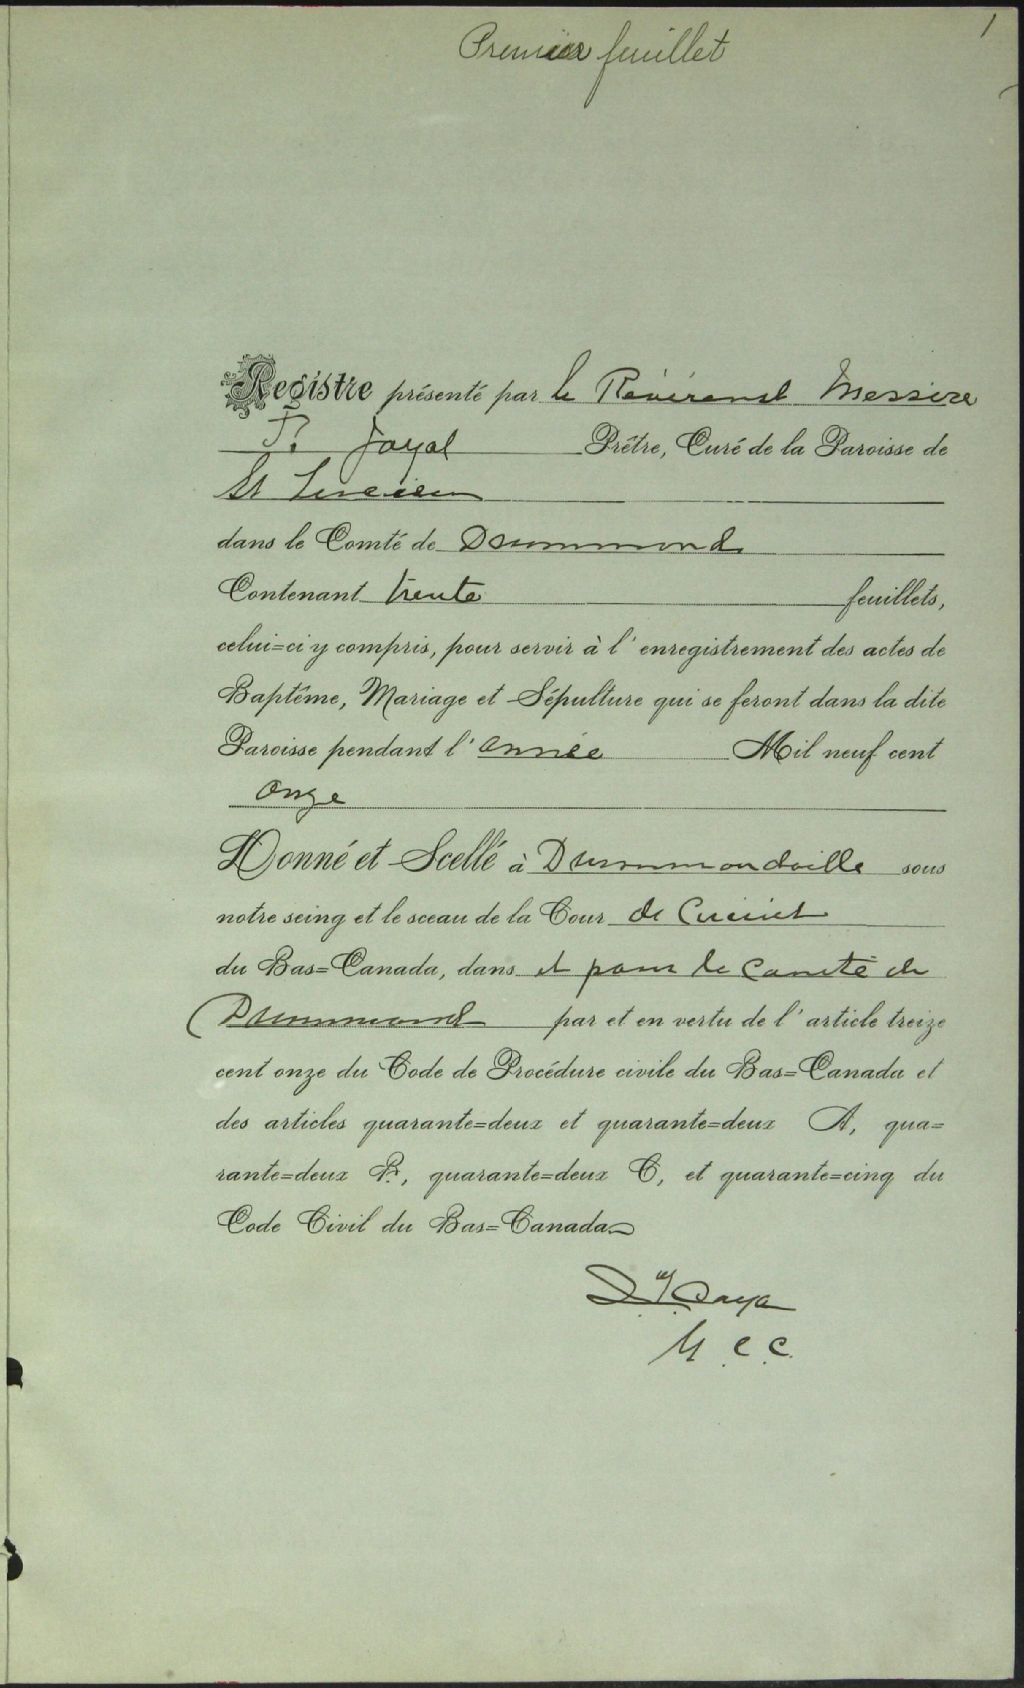 1
Premier feuillet
Registre présenté par le Révérend Messire
P. Joyal Prêtre, Curé de la Paroisse de
St Lucien
dans le Comté de Drummond
Contenant trente feuillets,
celui=ci y compris, pour servir à l'enregistrement des actes de
Baptême, Mariage et Sépulture qui se feront dans la dite
Paroisse pendant l'année Mil neuf cent
onze
Donné et Scellé à Drummondville sous
notre seing et le sceau de la Cour de Circuit
du Bas=Canada, dans et pour le Comté de
Drummond par et en vertu de l'article treize
cent onze du Code de Procédure civile du Bas=Canada et
des articles quarante=deux et quarante=deux A, qua=
rante=deux B, quarante=deux C, et quarante=cinq du
Code Civil du Bas=Canada
C. C.